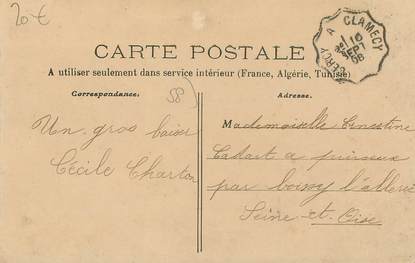 20 €
CLAMECY
A
16
SEPT
08
CARTE POSTALE
A utiliser seulement dans service intérieur (France, Algérie, Tunisie)
Correspondance.
58
Adresse.
Un gros baiser
Cécile Charton
Mademoiselle Ernestine
Cadart a puiseux
par boissy l'allerie
Seine-et-Oise